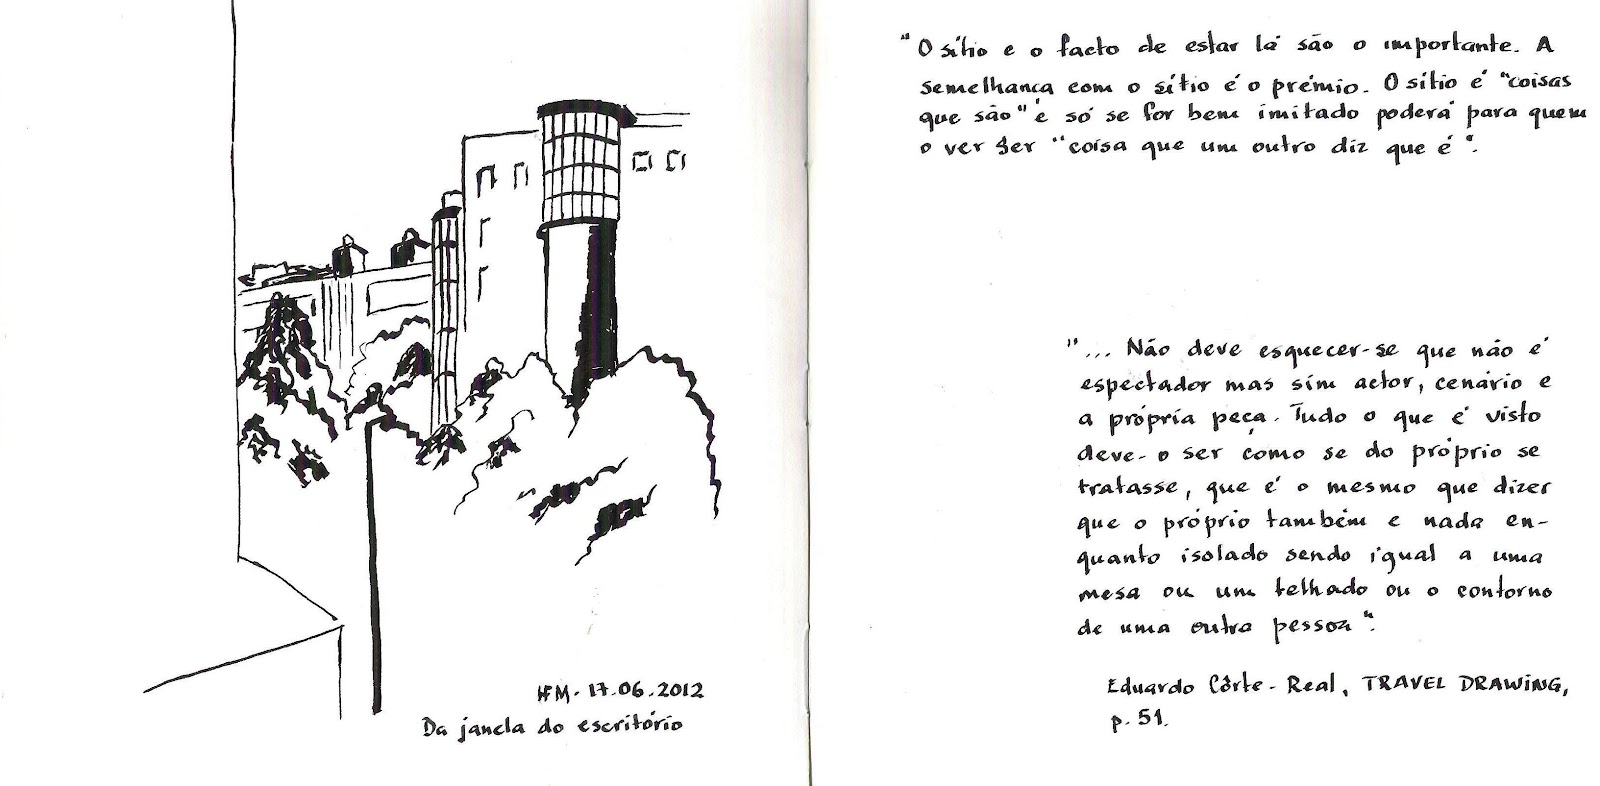 HFM - 17.06.2012
Da janela do escritório
"O sítio e o facto de estar lá são o importante. A
semelhança com o sítio é o prémio. O sítio é "coisas
que são" e só se for bem imitado poderá para quem
o ver ser "coisa que um outro diz que é".
"... Não deve esquecer-se que não é
espectador mas sim actor, cenário e
a própria peça. Tudo o que é visto
deve-o ser como se do próprio se
tratasse, que é o mesmo que dizer
que o próprio também e nada en-
quanto isolado sendo igual a uma
mesa ou um telhado ou o contorno
de uma outra pessoa".
Eduardo Côrte-Real, TRAVEL DRAWING,
p. 51.